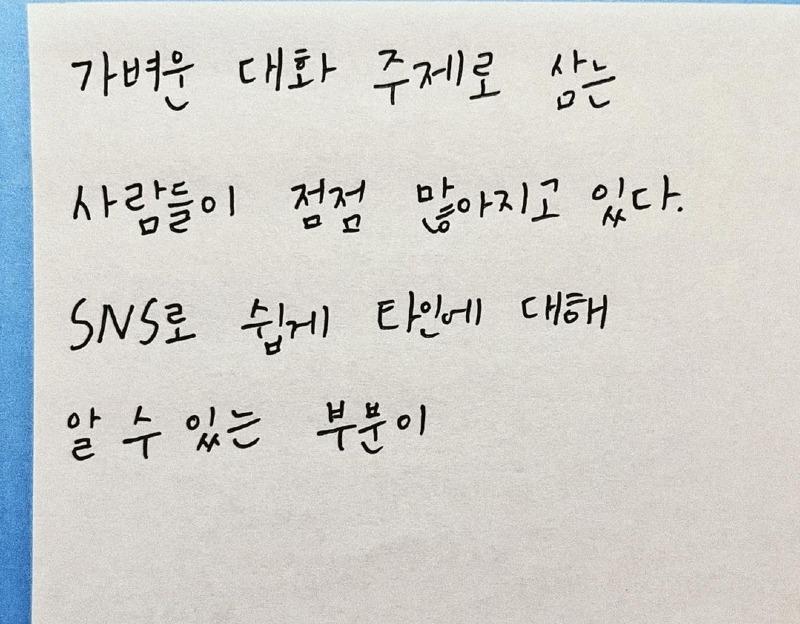 가벼운 대화 주제로 삼는
사람들이 점점 많아지고 있다.
SNS로 쉽게 타인에 대해
알 수 있는 부분이